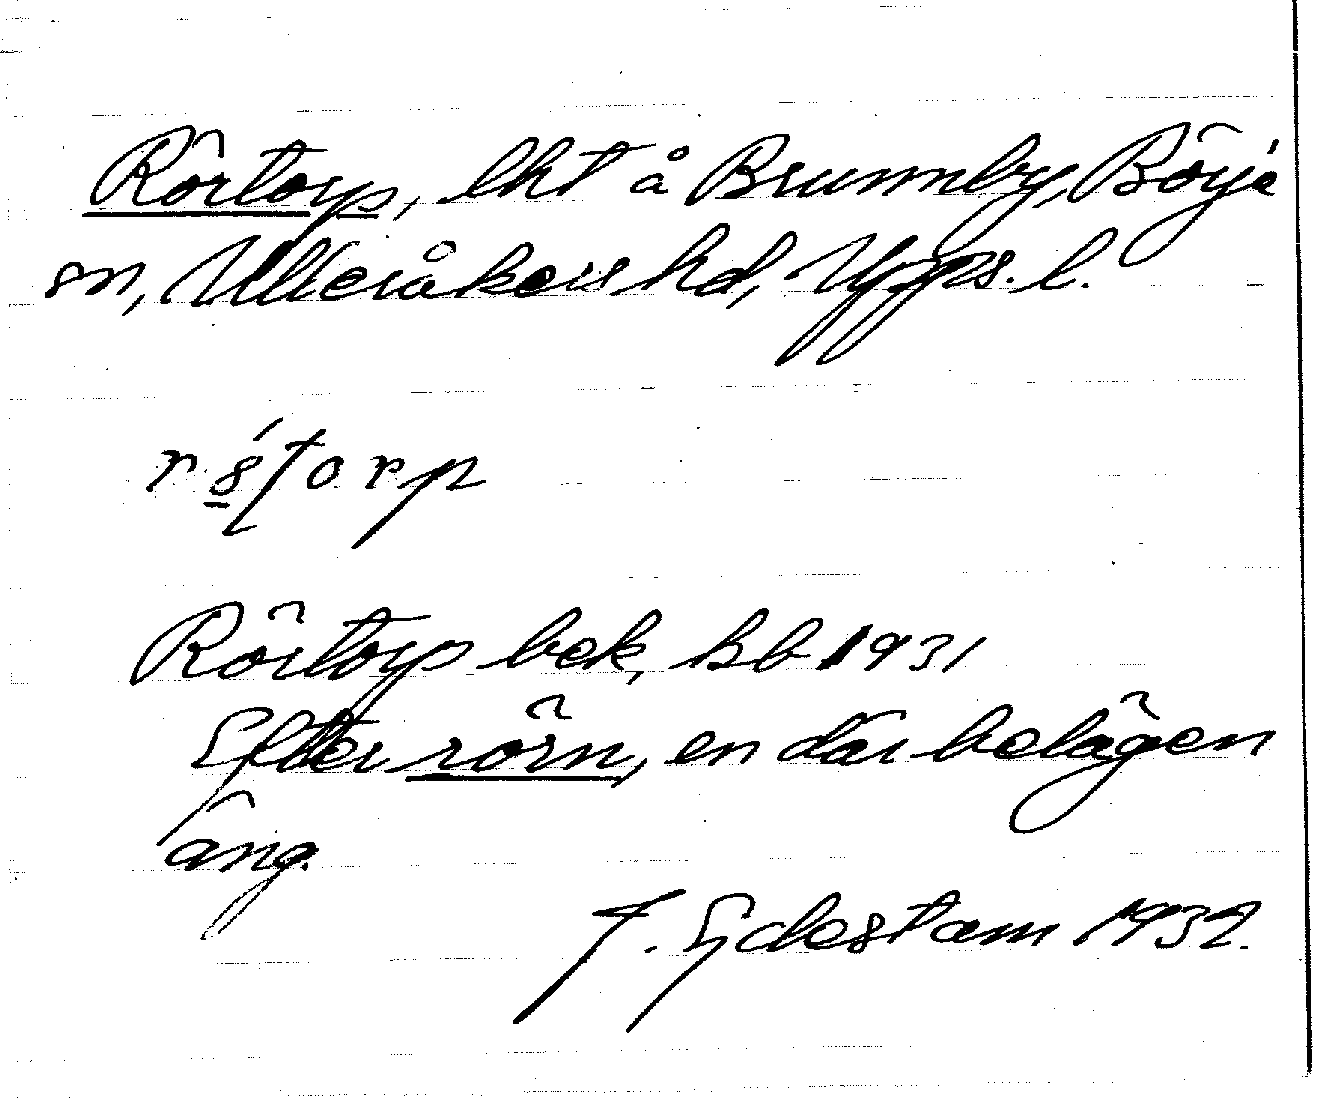 Rörtorp, lht å Brunnby, Börje
sn, Ulleråkers hd, Upps. l.
Rörtorp bek, hb 1931
Efter rörn, en där belägen
äng.
F. Edestam 1932.